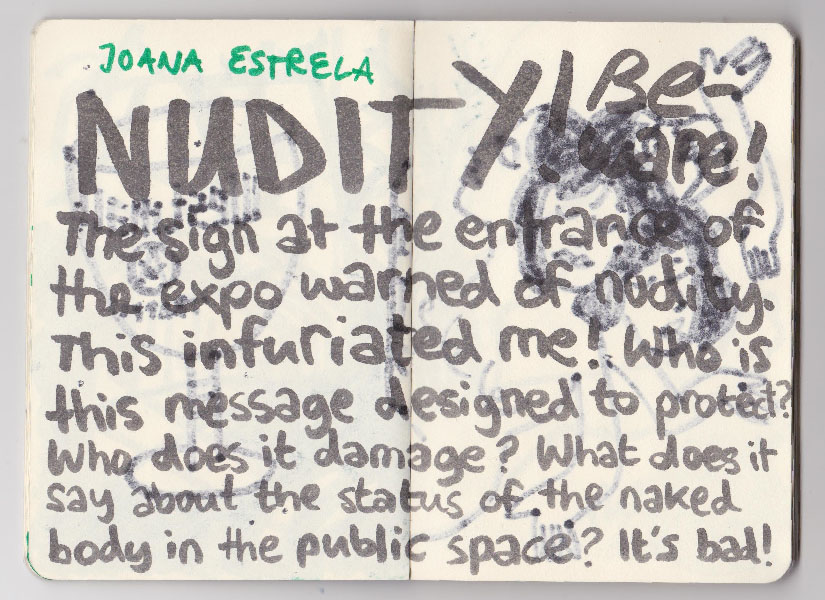 JOANA ESTRELA
NUDITY! Be-
ware!
The sign at the entrance of
the expo warned of nudity.
This infuriated me! Who is
this message designed to protect?
Who does it damage? What does it
say about the status of the naked
body in the public space? It's bad!